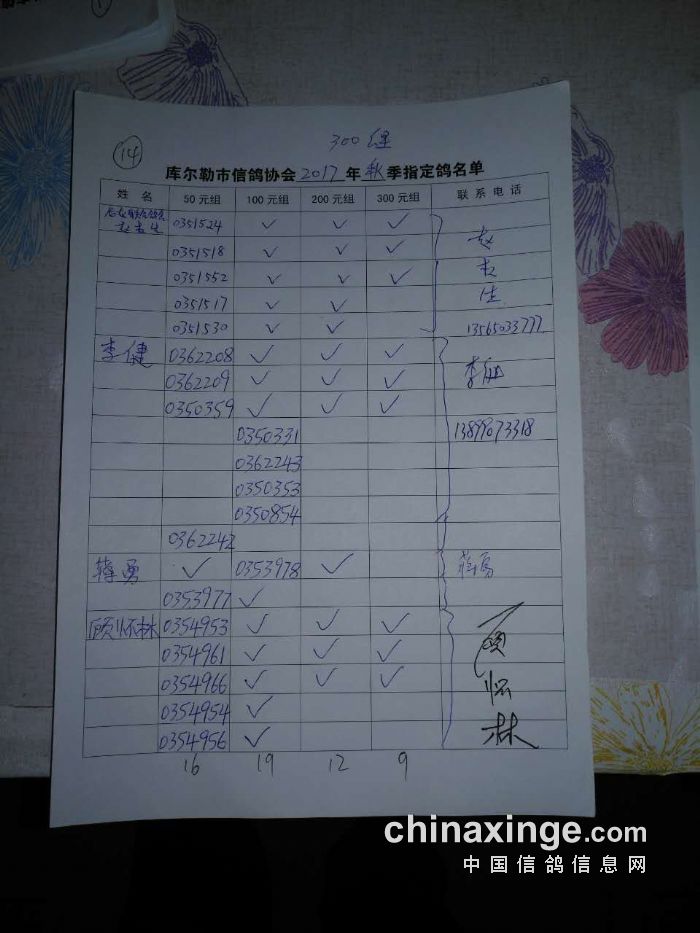 14
300
库尔勒市信鸽协会2017年秋季指定鸽名单
姓 名 50元组 100元组 200元组 300元组 联系电话
0351524 ✓ ✓ ✓
0351518 ✓ ✓ ✓
0351552 ✓ ✓ ✓
0351517 ✓ ✓
0351530 ✓ ✓ 13565033777
李健 0362208 ✓ ✓ ✓
0362209 ✓ ✓ ✓ 李健
0350359 ✓ ✓ ✓
0350331 13899073318
0362243
0350353
0350854
0362242
蒋勇 ✓ 0353978 ✓ 蒋勇
0353977 ✓
顾怀林 0354953 ✓ ✓ ✓ 顾怀林
0354961 ✓ ✓ ✓
0354966 ✓ ✓ ✓
0354954 ✓
0354956 ✓
16 19 12 9
chinaxinge.com
中国信鸽信息网